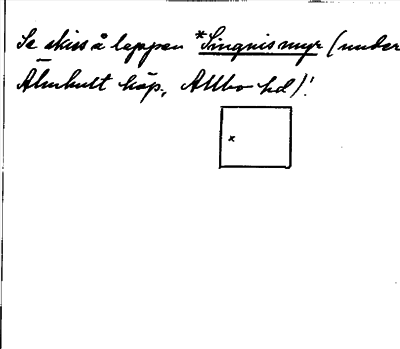 Se skiss å lappen *Singnismyr (under
Älmhult köp., Allbo hd)!
x